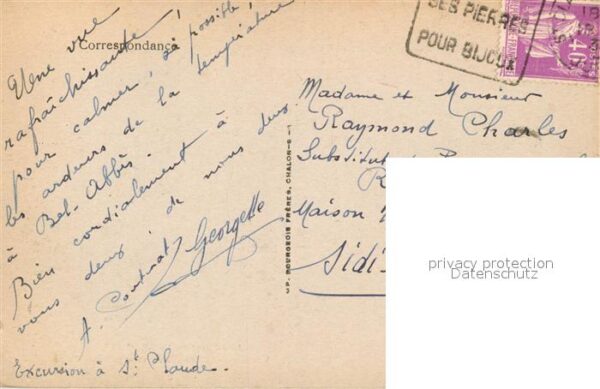 Correspondance
Une vue
rafraîchissante,
pour calmer, si possible,
les ardeurs de la température
à Bel-Abbès.
Bien cordialement à
vous deux, de nous deux
Georgette
Excursion à St. Claude.
SES PIERRES
POUR BIJOUX
Madame et Monsieur
Raymond Charles
Substitut
Maison
Sidi-
IP. BOURGEOIS FRÈRES, CHALON-S-
privacy protection
Datenschutz